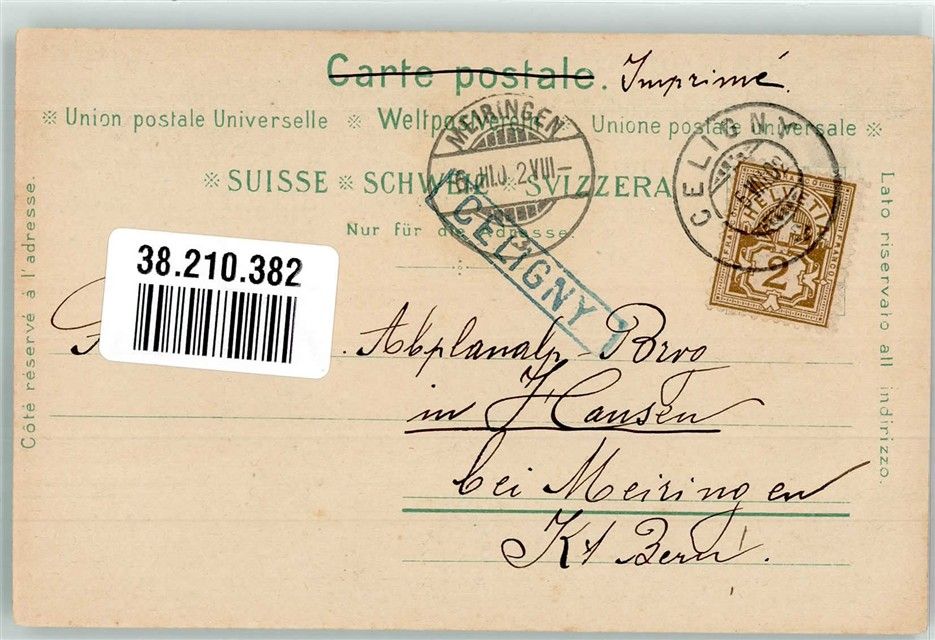 Carte postale. Imprimé.
※ Union postale Universelle ※ Weltpostverein ※ Unione postale Universale ※
※ SUISSE ※ SCHWEIZ ※ SVIZZERA
Nur für die Adresse
Côté reservé à l'adresse.
Lato riservato all indirizzo.
MEIRINGEN
VIII-
CELIGNY
CELIGNY
HELVETIA
FRANCO
2
38.210.382
Abplanalp-Brog
in Hausen
bei Meiringen
Kt Bern.